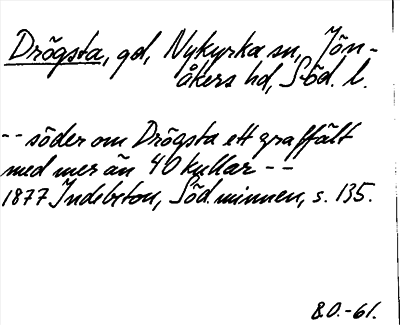 Drögsta, gd, Nykyrka sn, Jön-
åkers hd, Söd. l.
-- söder om Drögsta ett graffält
med mer än 40 kullar --
1877 Indebetou, Söd. minnen, s. 135.
B.O.-61.